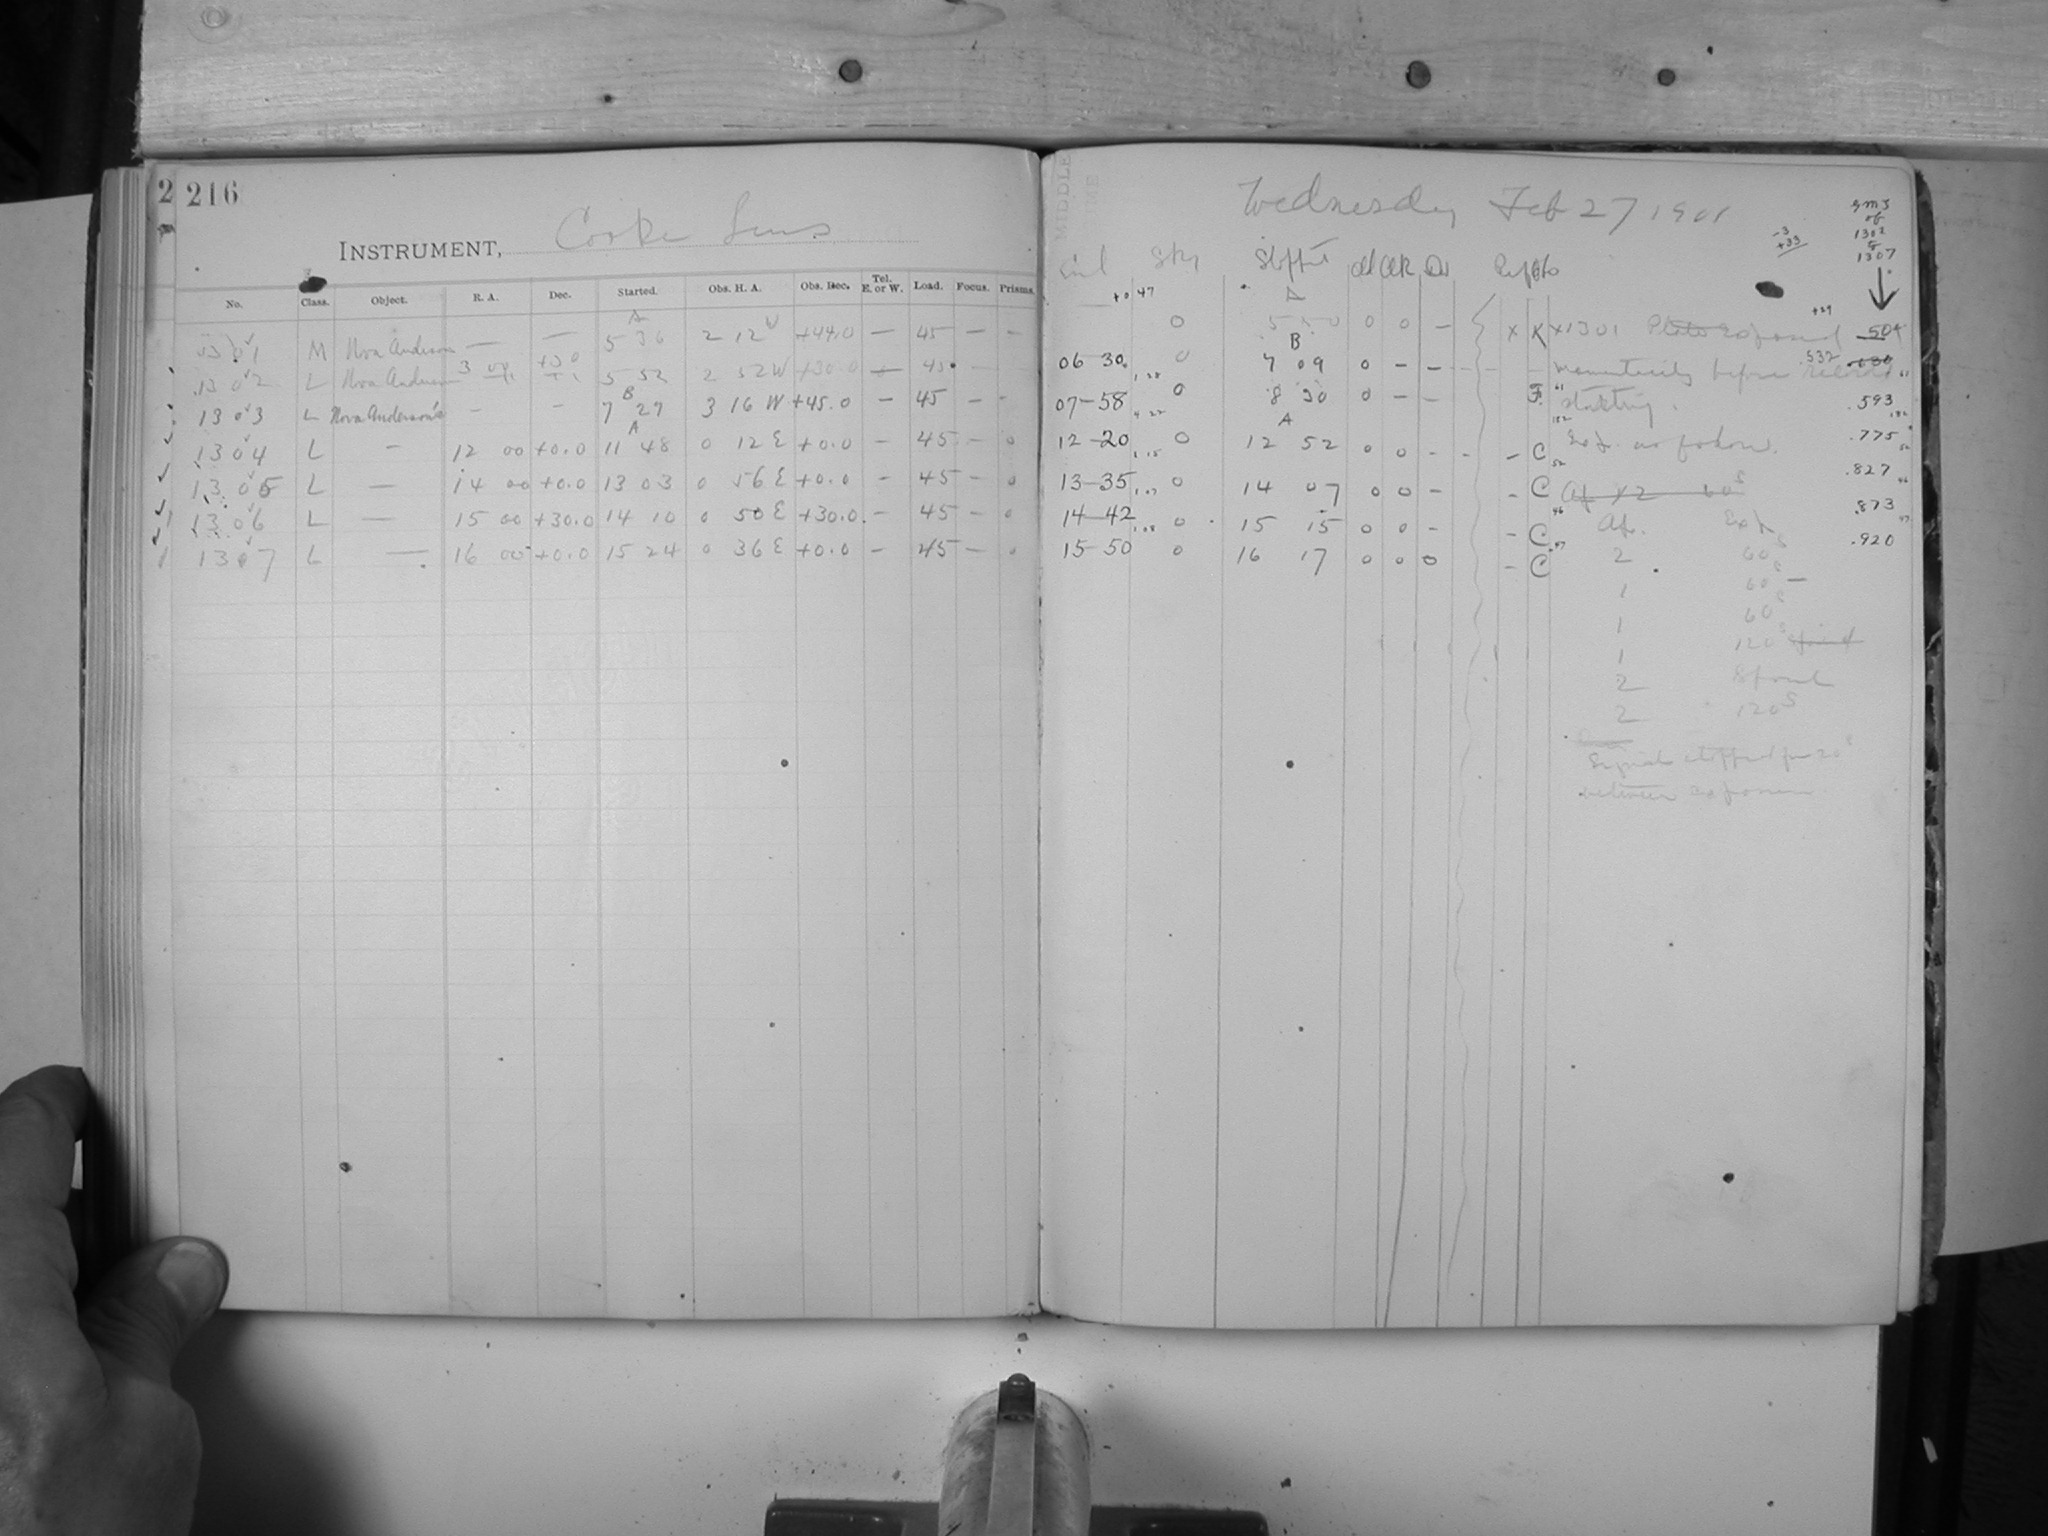 2 216
INSTRUMENT, Cooke Lens
No. Class. Object. R. A. Dec. Started. Obs. H. A. Obs. Dec. Tel. E. or W. Load. Focus. Prisms.
A
1301 M Nova Anderson — — 5 36 2 12 W +44.0 — 45 — —
1302 L Nova Anderson 5 52 2 52 W +30.0 — 45 —
B
1303 L Nova Anderson's — — 7 27 3 16 W +45.0 — 45 — —
A
1304 L — 12 00 +0.0 11 48 0 12 E +0.0 — 45 — 0
1305 L — 14 00 +0.0 13 03 0 56 E +0.0 — 45 — 0
1306 L — 15 00 +30.0 14 10 0 50 E +30.0 — 45 — 0
1307 L — 16 00 +0.0 15 24 0 36 E +0.0 — 45 — 0
MIDDLE
Wednesday Feb 27 1901
G.M.T. of 1302 & 1307
-3
+33
Sky
+0 47
A
0 5 50 0 0 — X K X 1301 Plate exposed
+29
.504
B
06-30 0 7 09 0 — — momentarily before
.532
07-58 0 8 30 0 — — F. starting.
.593
A
12-20 0 12 52 0 0 — — C Exp. as follows.
.775
13-35 0 14 07 0 0 — — C Ap X 2 60s
.827
14-42 0 15 15 0 0 — — C Ap. Exp
.873
15-50 0 16 17 0 0 0 — C 2 60s
.920
1 60s —
1 60s
1 120s
2
2 120s
Signals stopped for 20s
between exposures.